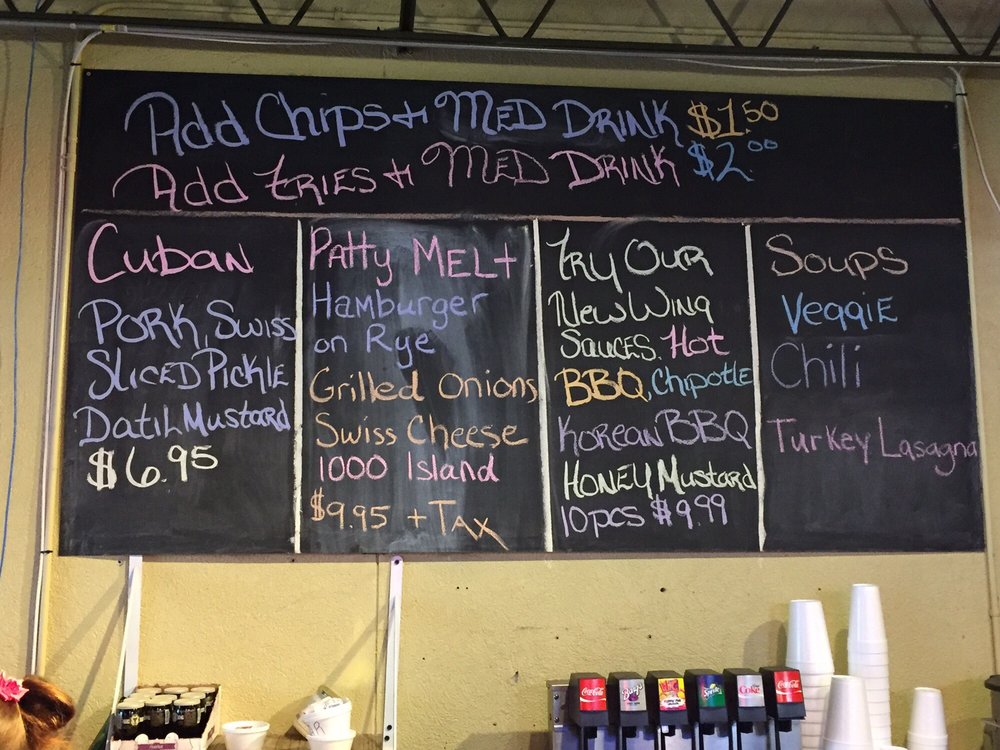 Add Chips + MED DRINK $1.50
Add FRIES + MED DRINK $2.00
Cuban
PORK, Swiss
SLICED PICKLE
DATIL MUSTARD
$6.95
Patty MELT
Hamburger
on Rye
Grilled Onions
Swiss Cheese
1000 Island
$9.95 + TAX
TRY OUR
NEW WING
SAUCES. Hot
BBQ, CHIPOTLE
KOREAN BBQ
HONEY MUSTARD
10 pcs $9.99
Soups
VEGGIE
Chili
Turkey Lasagna
Coca-Cola
Barq's
Sprite
Coke
Coca-Cola